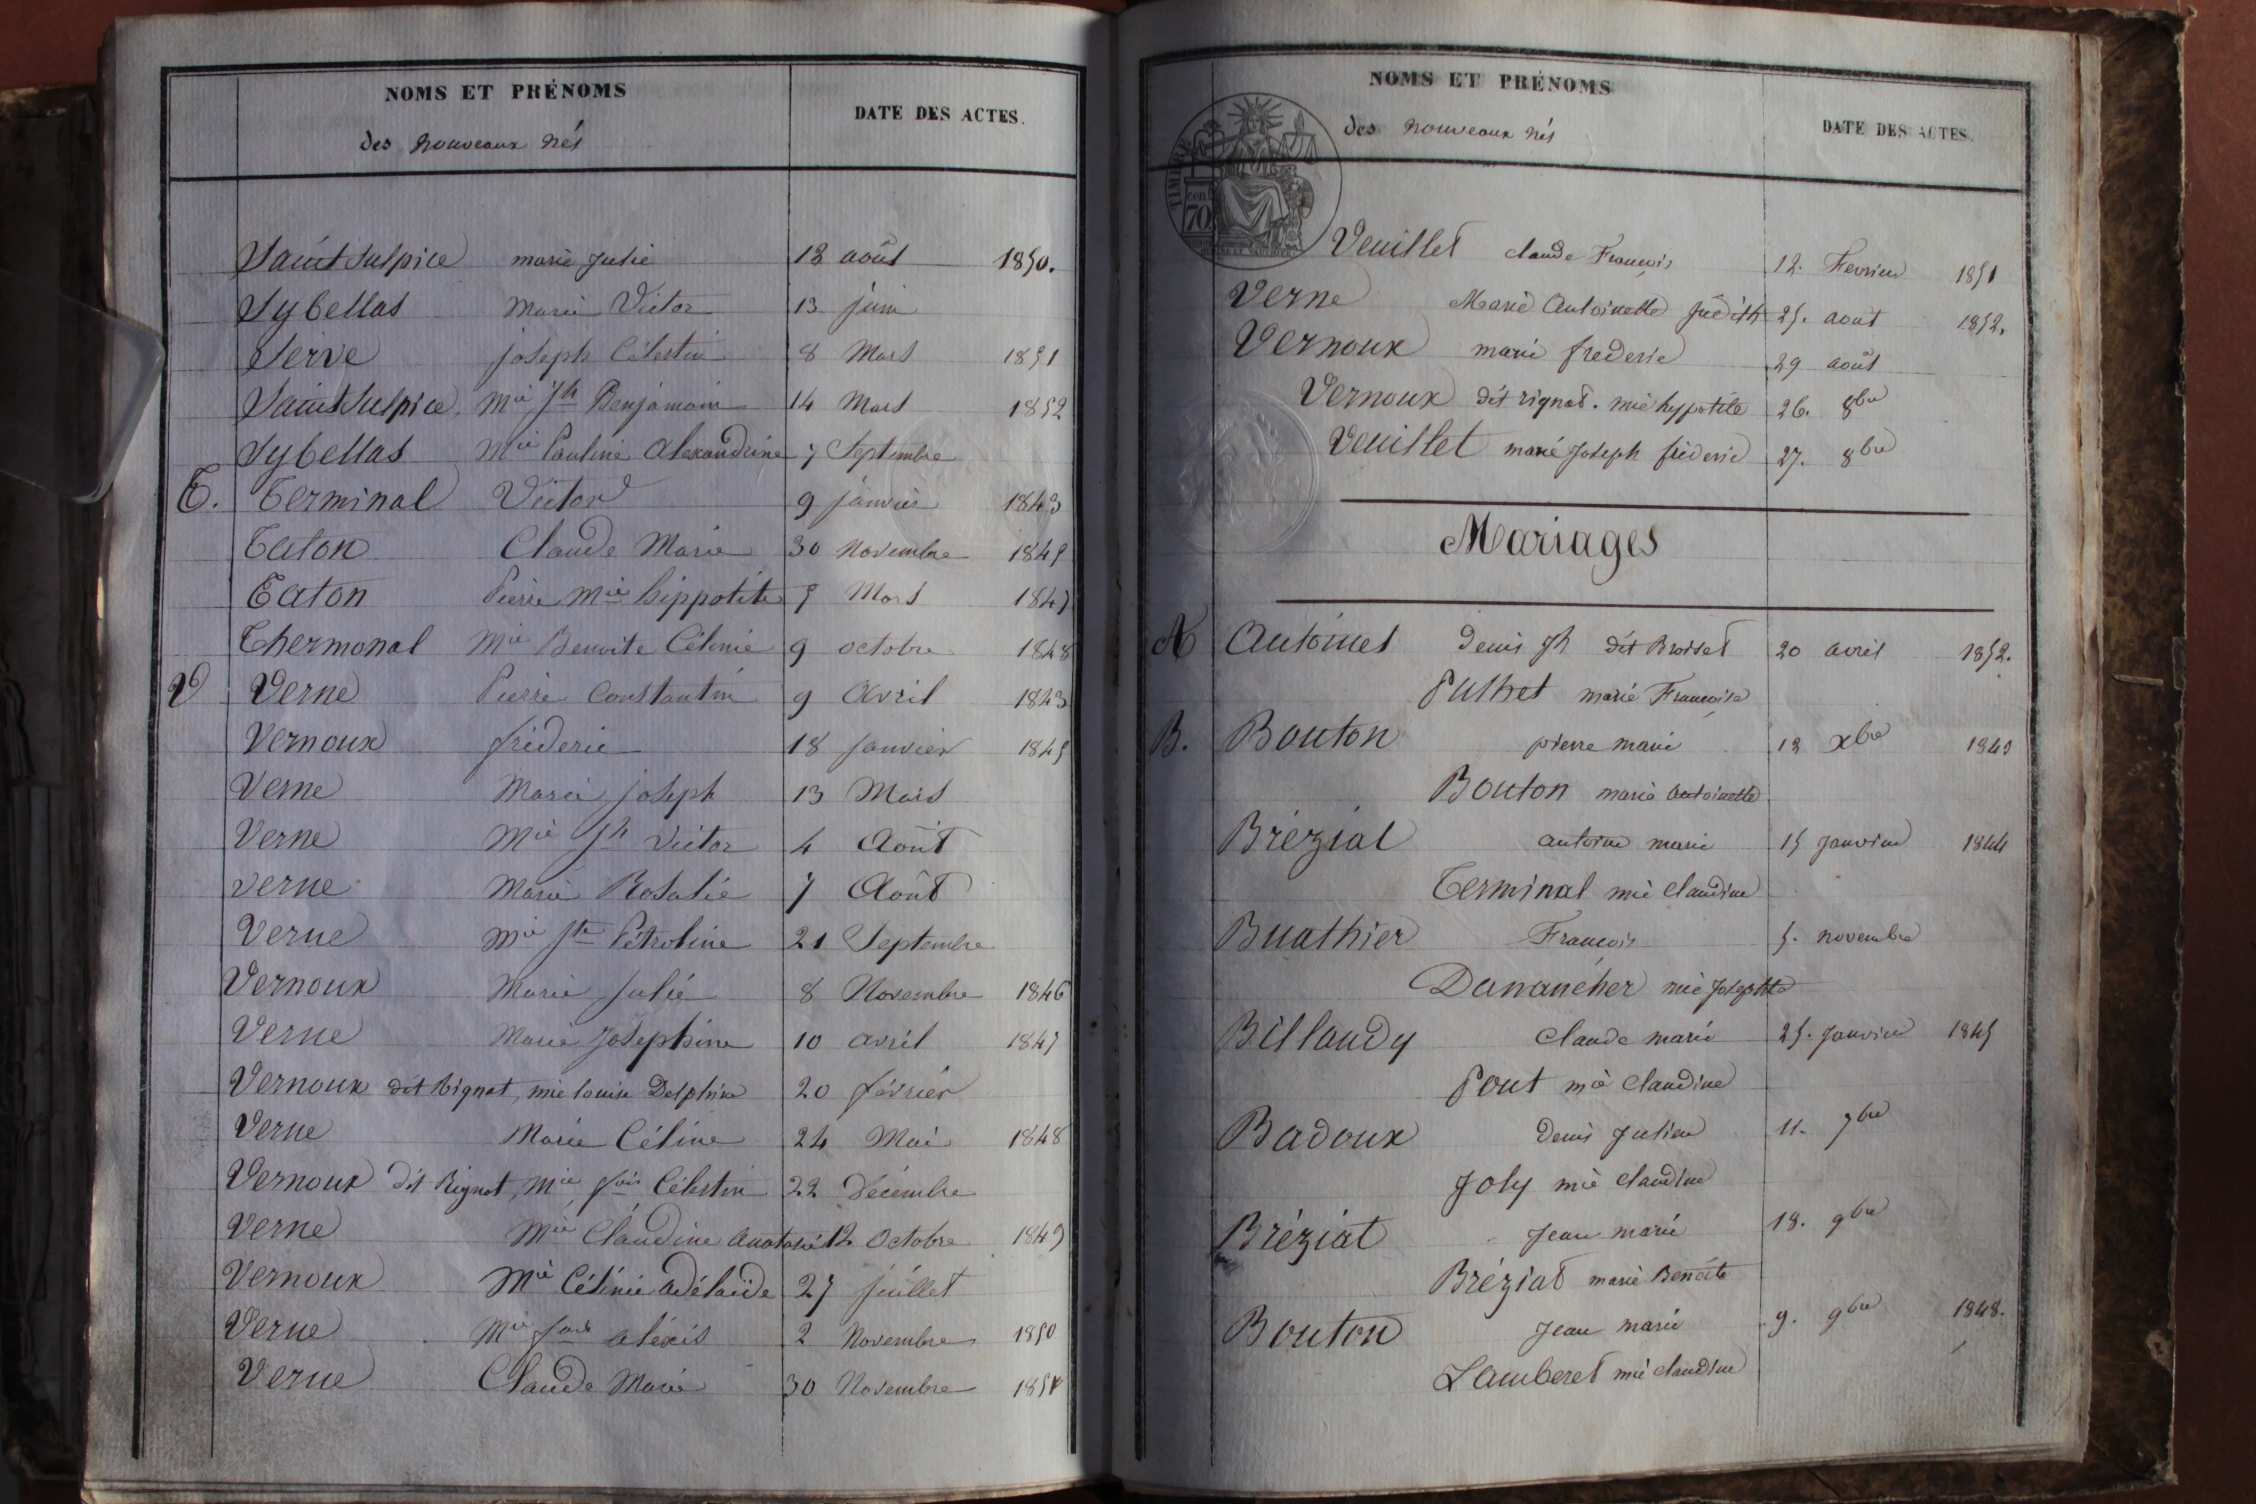 NOMS ET PRÉNOMS
DATE DES ACTES.
des nouveaux nés
Saint Sulpice marie Julie 18 août 1850.
Sybellas Marie Victor 13 juin
Serve joseph Célestin 8 Mars 1851
Saint Sulpice Mie Jh Benjamain 14 Mars 1852
Sybellas Mie Pauline Alexandrine 7 Septembre
T. Terminal Victor 9 janvier 1843
Taton Claude Marie 30 Novembre 1845
Taton Pierre Mie hippolite 5 Mars 1847
Thermonal Mie Benoite Célinie 9 octobre 1848
V Verne Pierre Constantin 9 Avril 1843
Vernoux fréderic 18 Janvier 1845
Verne Marie joseph 13 Mars
Verne Mie Jh Victor 4 Août
Verne Marie Rosalie 7 Août
Verne Mie Jte Pétroline 21 Septembre
Vernoux Marie Julie 8 Novembre 1846
Verne Marie Joséphine 10 avril 1847
Vernoux dit Rignat, mie louise Delphine 20 février
Verne Marie Céline 24 Mai 1848
Vernoux dit Rignat, Mie fois Célestin 22 Décembre
Verne Mie Claudine Anatasie 12 Octobre 1849
Vernoux Mie Célinie Adélaïde 27 juillet
Verne Mie alexis 2 Novembre 1850
Verne Claude Marie 30 Novembre 1851
NOMS ET PRÉNOMS
DATE DES ACTES.
des nouveaux nés
TIMBRE
70
Veuillet claude François 12. Fevrier 1851
Verne Marie Antoinette Judith 25. août 1852.
Vernoux marie frederic 29 août
Vernoux dit rignat. mie hypolite 26. 8bre
Veuillet marie Joseph fréderic 27. 8bre
Mariages
A Antoinet Denis Jh dit Broisset 20 avril 1852.
Puthet marie Françoise
B. Bouton pierre marie 12 xbre 1843
Bouton marie antoinette
Bréziat antoine marie 15 Janvier 1844
Terminal mie claudine
Buathier François 5. novembre
Danancher mie Josephte
Billaudy claude marie 25. Janvier 1845
Pont mie claudine
Badoux Denis Julien 11. 7bre
Joly mie claudine
Bréziat Jean marie 18. 9bre
Bréziat marie Benoite
Bouton Jean marie 9. 9bre 1848.
Lamberet mie claudine